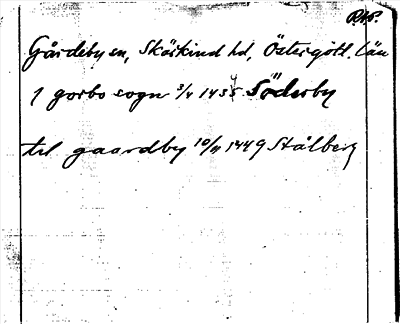 Gårdeby sn, Skärkind hd, Östergötl. län
J gorbo sogn 3/4 1435 Söderby
til gaardby 10/4 1449 Stålberg